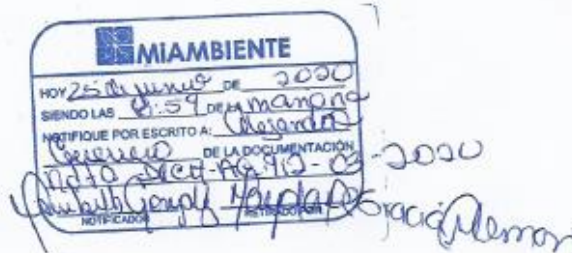 MiAMBIENTE
HOY 25 de junio DE 2020
SIENDO LAS :59 DE LA mañana
NOTIFIQUE POR ESCRITO A: Alejandra
Guerrero DE LA DOCUMENTACIÓN
nota -AG-912-03-2020
NOTIFICADOR RETIRADO POR